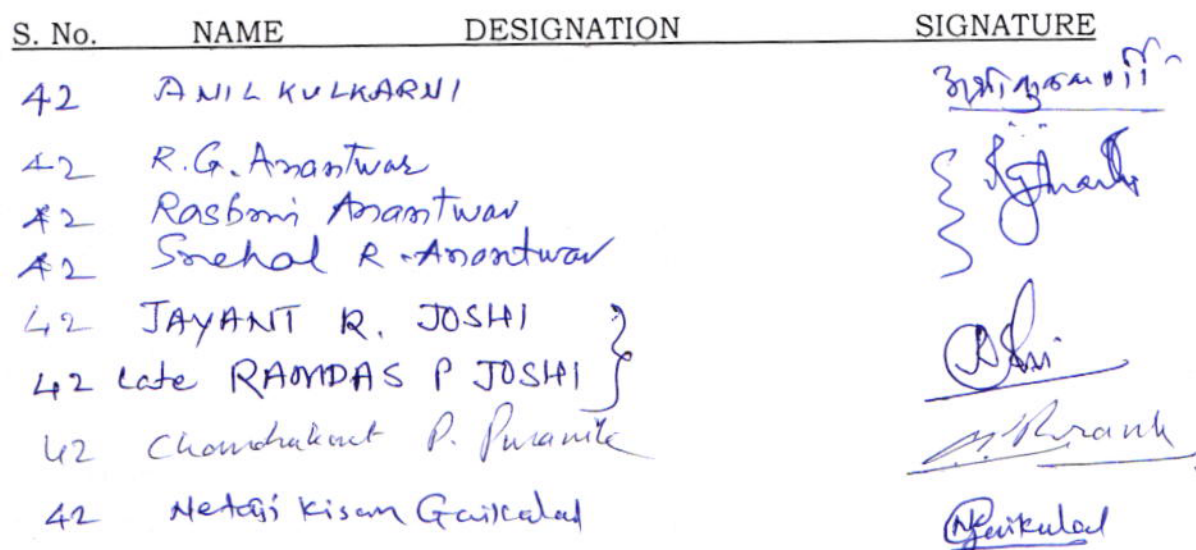 S. No. NAME DESIGNATION SIGNATURE
42 ANIL KULKARNI
42 R.G. Anantwar
42 Rasbmi Anantwar
42 Snehal R. Anantwar
42 JAYANT R. JOSHI
42 Late RAMDAS P JOSHI
42 Chandrakant P. Puranik P. Puranik
42 Netaji Kisan Gaikwad NGaikwad